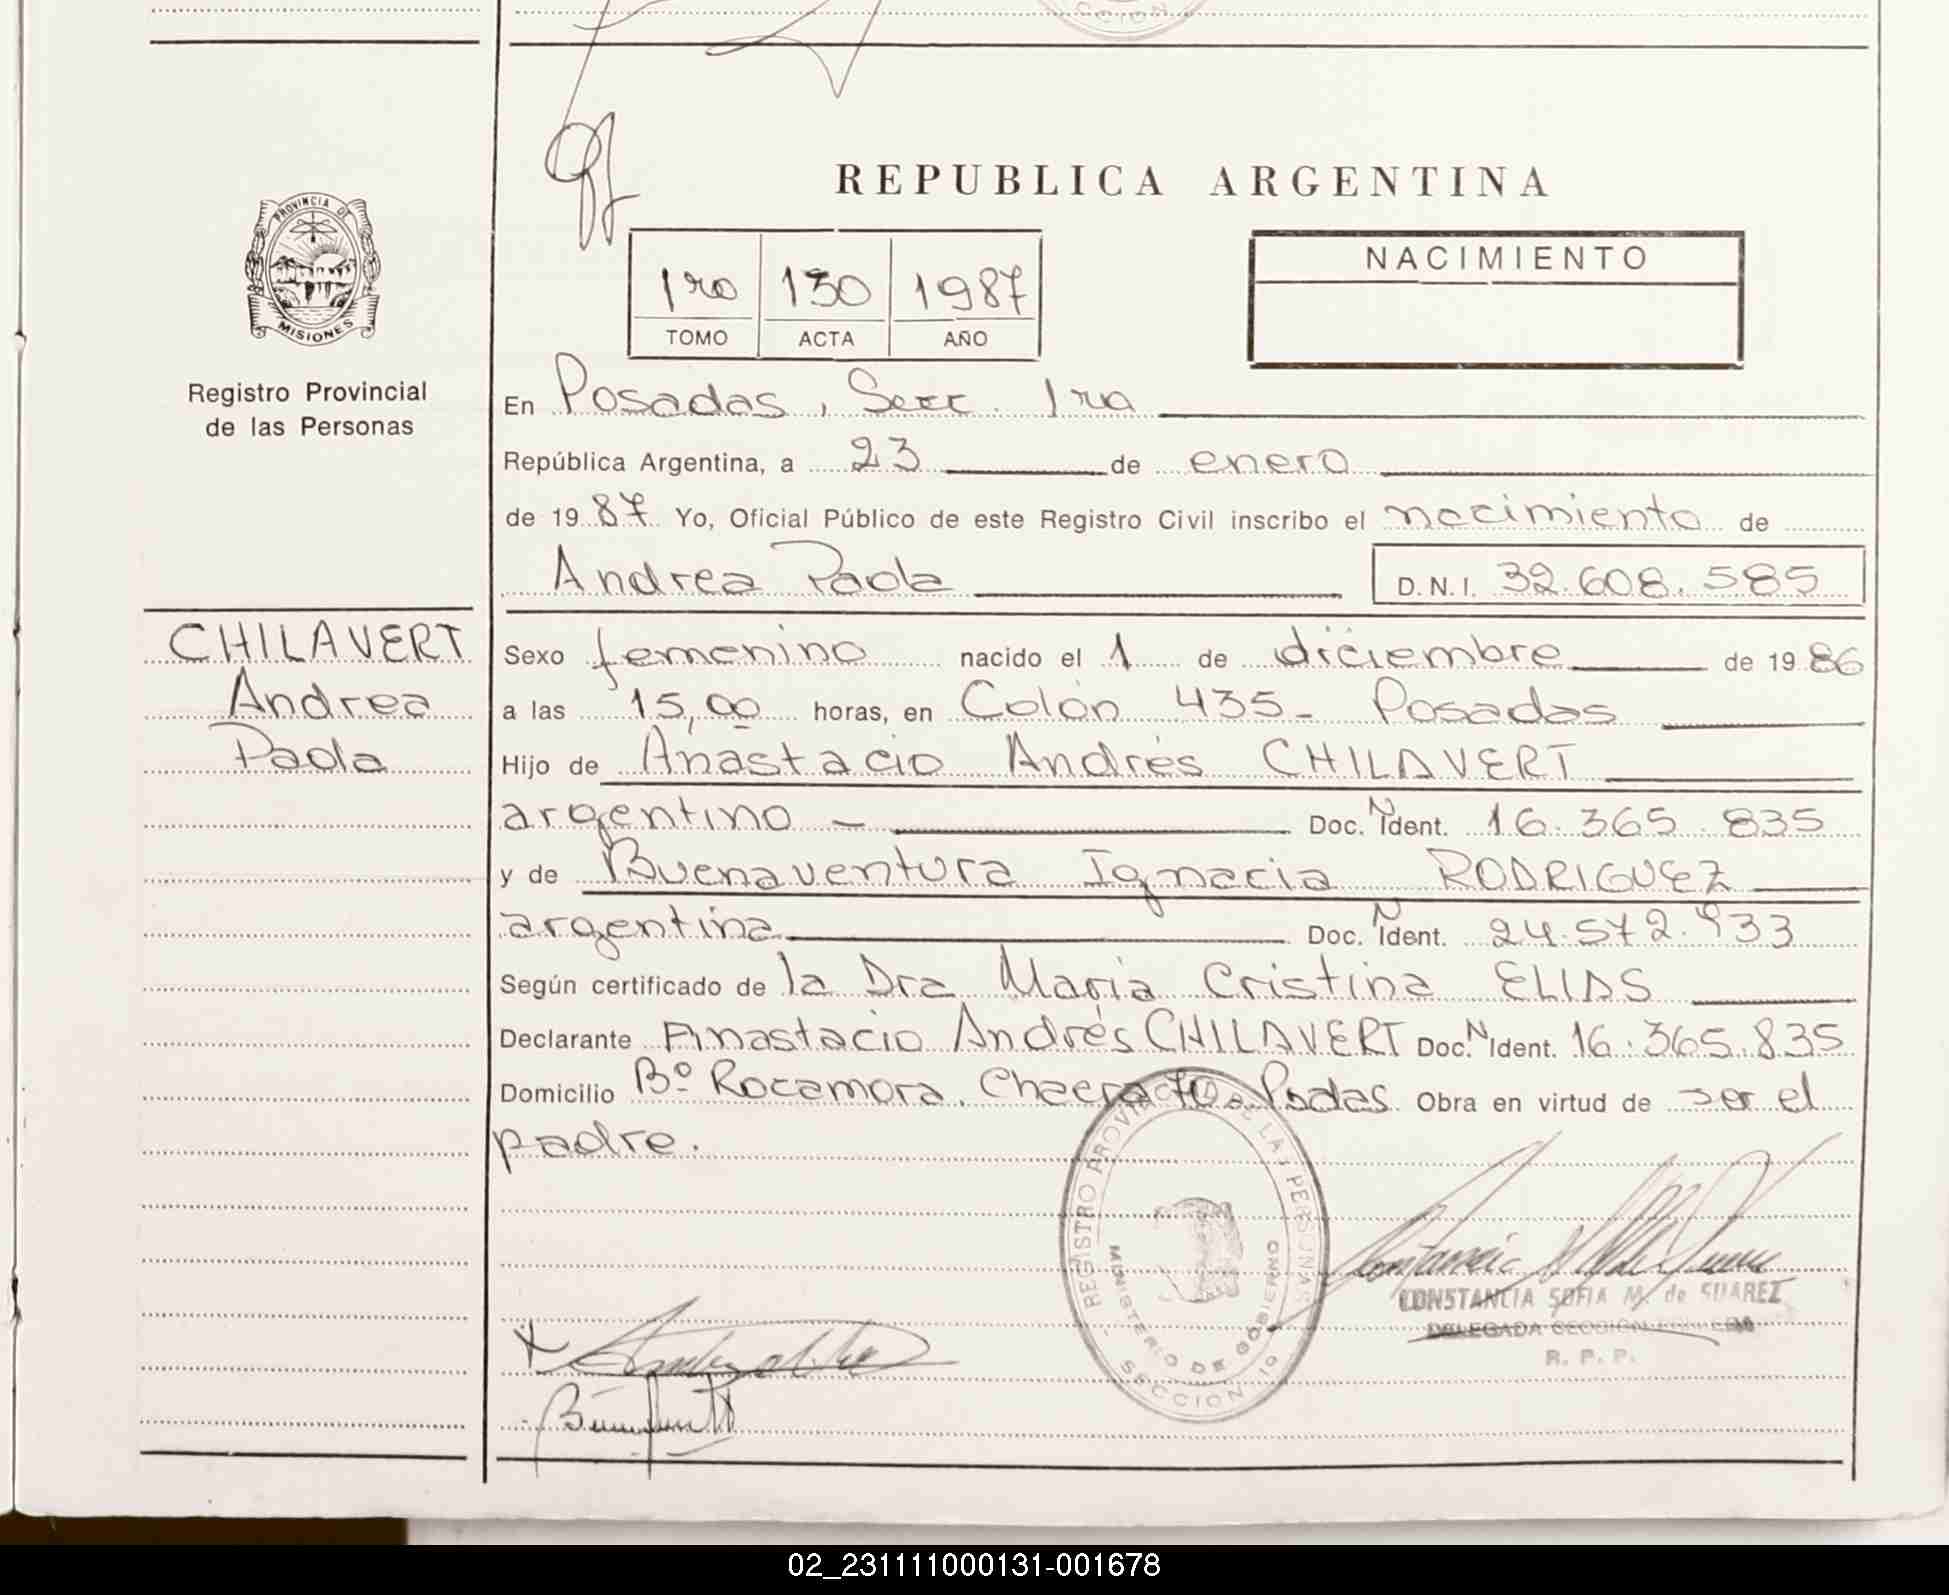 CCION
REPUBLICA ARGENTINA
PROVINCIA DE
MISIONES
Registro Provincial
de las Personas
1ro 130 1987
TOMO ACTA AÑO
NACIMIENTO
En Posadas, Secc. 1ra
República Argentina, a 23 de enero
de 1987 Yo, Oficial Público de este Registro Civil inscribo el nacimiento de
Andrea Paola D.N.I. 32.608.585
CHILAVERT
Andrea
Paola
Sexo femenino nacido el 1 de diciembre de 1986
a las 15,00 horas, en Colón 435- Posadas
Hijo de Anastacio Andrés CHILAVERT
argentino - Doc. N Ident. 16.365.835
y de Buenaventura Ignacia RODRIGUEZ
argentina Doc. N Ident. 24.572.933
Según certificado de la Dra María Cristina ELIAS
Declarante Anastacio Andrés CHILAVERT Doc. N Ident. 16.365.835
Domicilio Bº Rocamora. Chacra Pdas. Obra en virtud de ser el
padre.
REGISTRO PROVINCIAL DE LAS PERSONAS
MINISTERIO DE GOBIERNO
SECCION 1º
CONSTANCIA SOFIA M. de SUAREZ
DELEGADA SECCION PRIMERA
R. P. P.
02_231111000131-001678